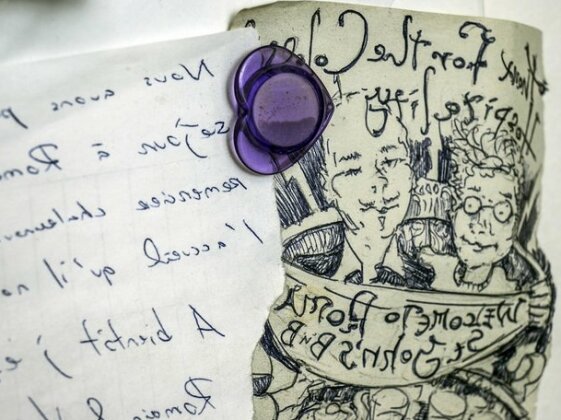 Nous avons p
séjour à Rom
remercier chaleureu
l'accueil qu'il no
A bientôt j'e
Romain
Thank For the
Hospitality
WELCOME TO ROME
St. John's BnB